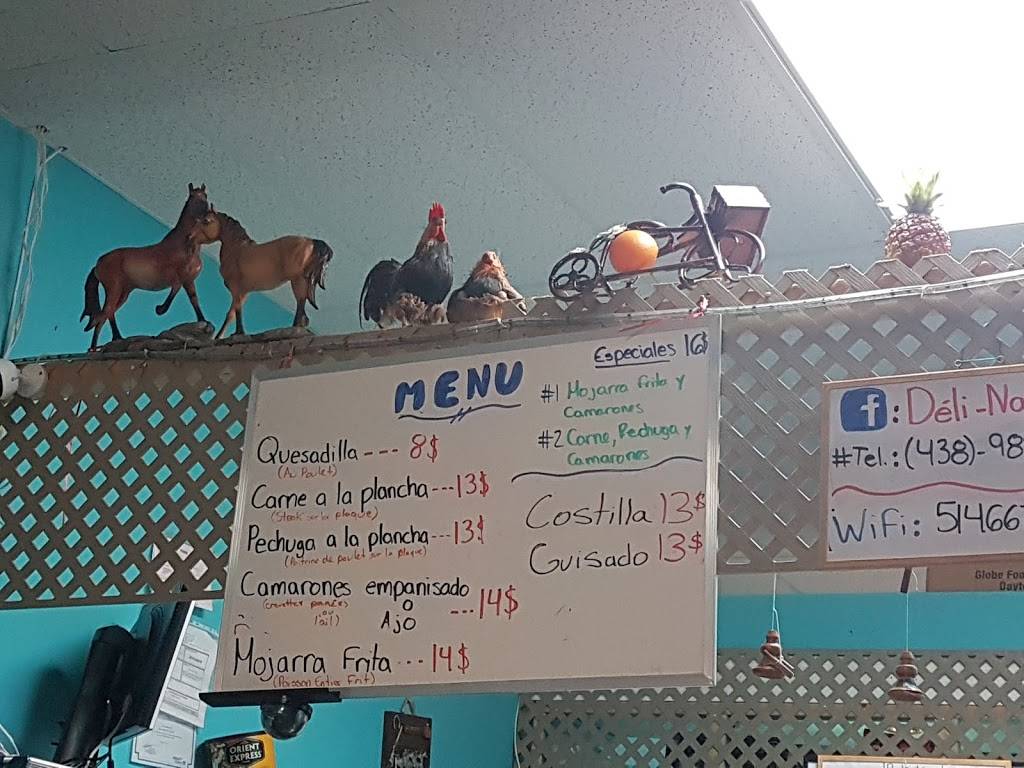 MENU
Especiales 16$
#1 Mojarra frita y
Camarones
#2 Carne, Pechuga y
Camarones
Quesadilla --- 8$
(Au Poulet)
Carne a la plancha --- 13$
(Steak sur la plaque)
Pechuga a la plancha --- 13$
(Poitrine de poulet sur la plaque)
Camarones empanisado
(crevettes panées
o
--- 14$
ou
l'ail)
Ajo
Mojarra Frita --- 14$
(Poisson Entier Frit)
Costilla 13$
Guisado 13$
f : Déli-No
#Tel.: (438)-98
WiFi: 51466
Globe Foo
Dayt
ORIENT
EXPRESS